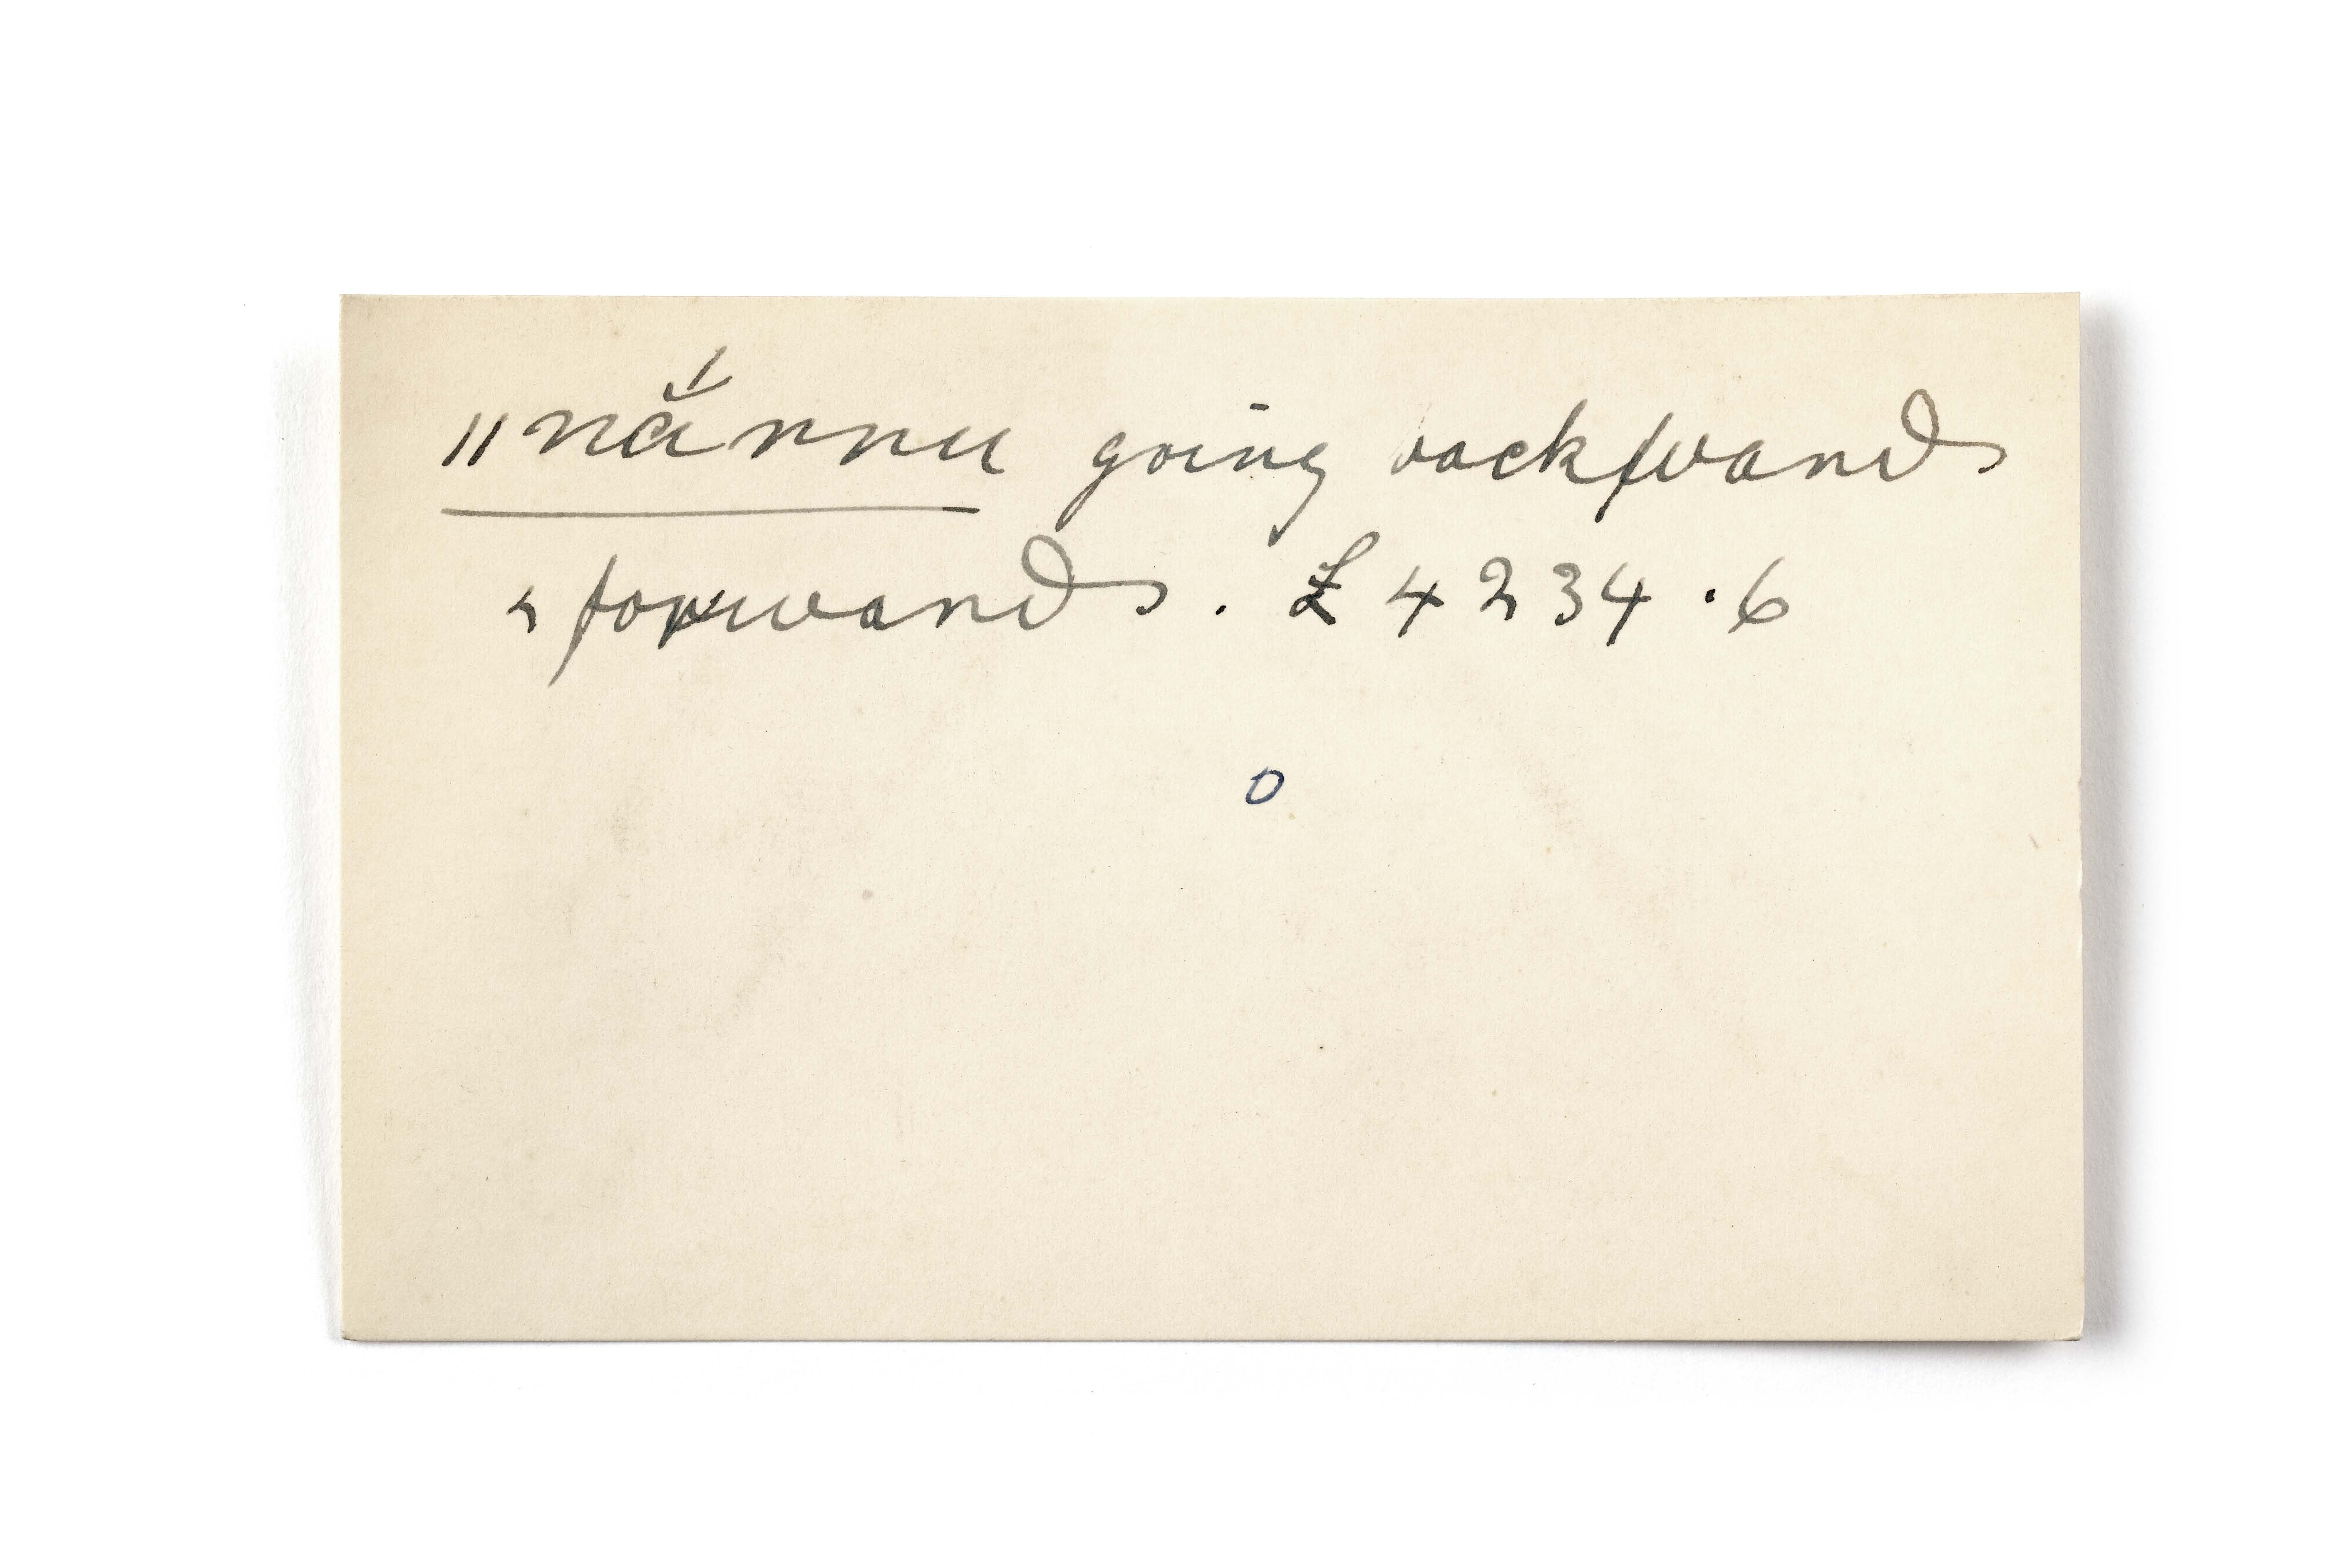 ǁnắnnu going backwards
& forwards. £ 4234.6
o